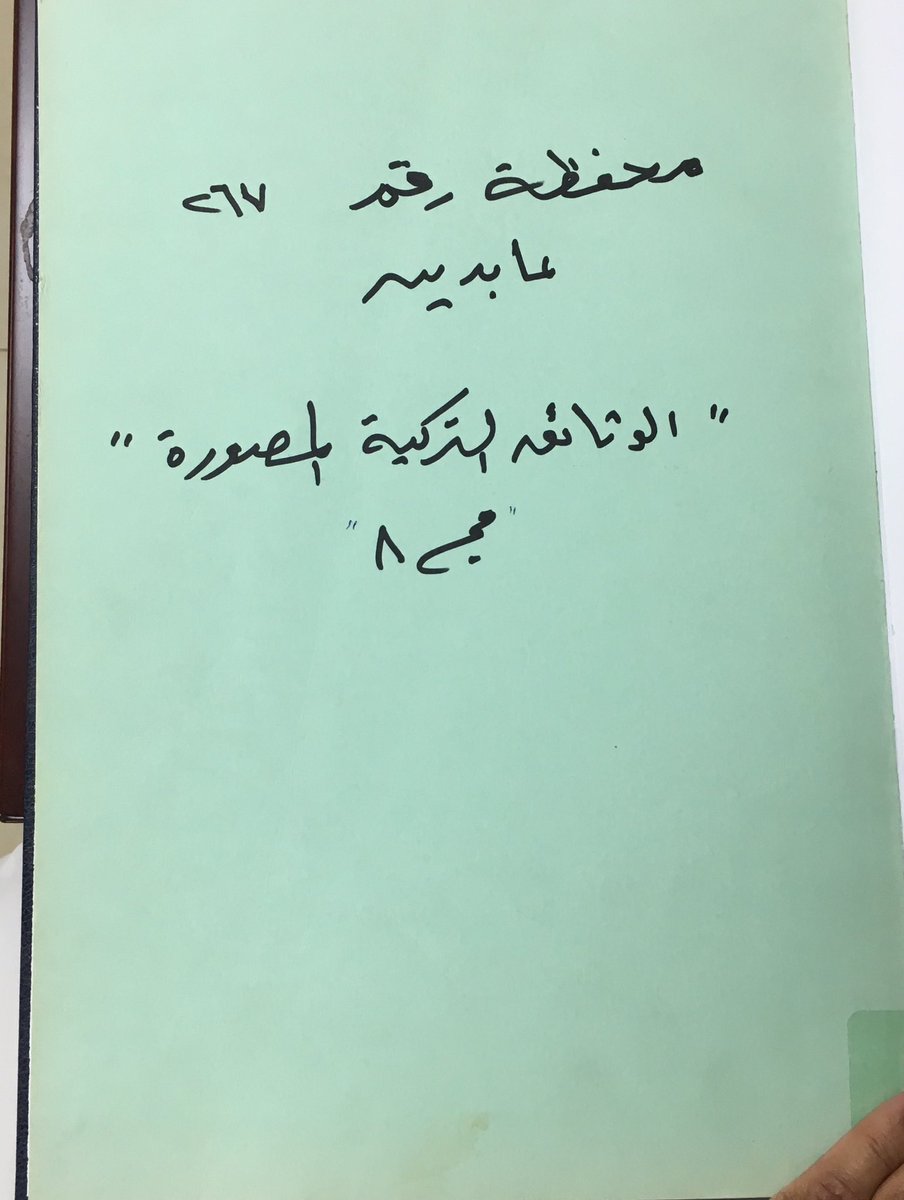 محفظة رقم ٢٦٧
عابدين
" الوثائق التركية المصورة "
"مج ٨"